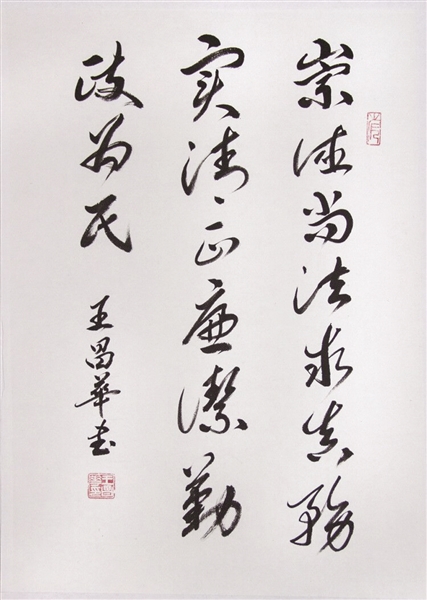 崇德尚法求真務
实清正廉潔勤
政为民
王昌華书